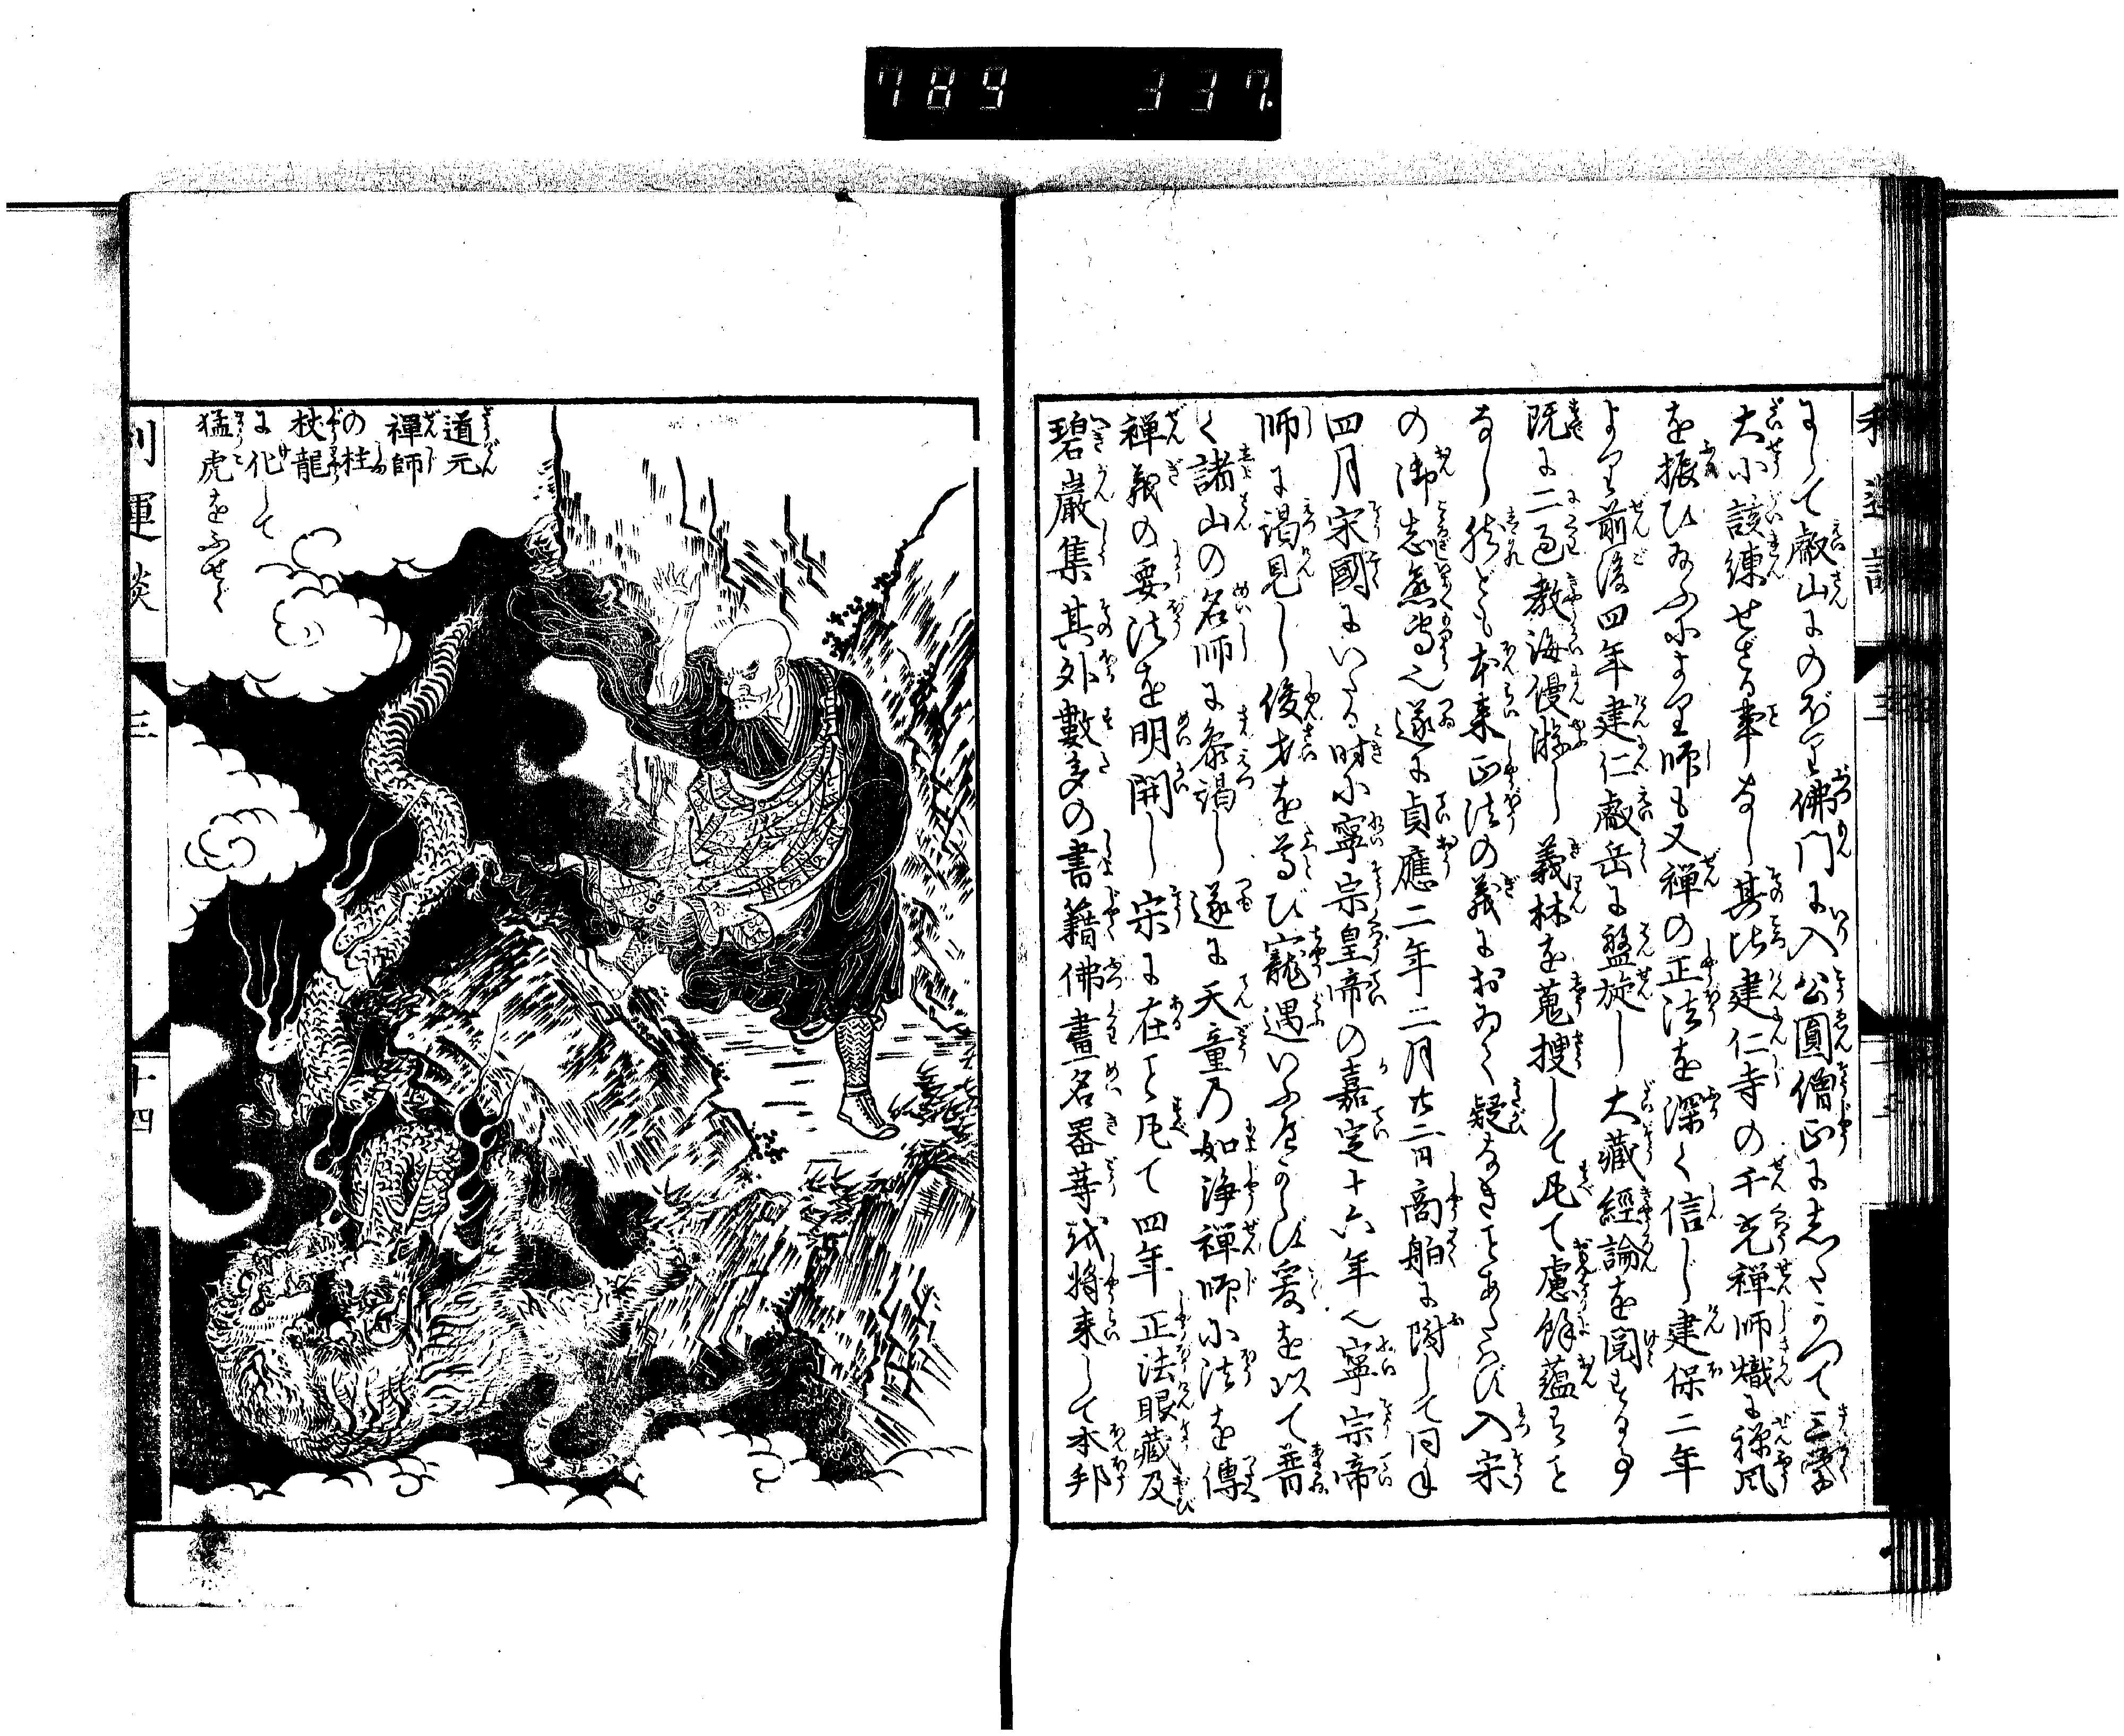 789 337
にして叡山にのぼり佛門に入公圓僧正にしたがつて三學
大小該練せざる事なし其比建仁寺の千光禅師熾に禅風
を振ひゐふにより師も又禅の正法を深く信じ建保二年
より前後四年建仁叡岳に盤旋し大藏經論を閲する事
既に二回教海優游し義林を蒐捜して凡て慮餘蘊すこと
なし然ども本来正法の義におゐて疑なきことあたはず入宋
の御志兼学也遂に貞應二年二月廿二日商舶に附して同年
四月宋國にいたる時に寧宗皇帝の嘉定十六年也寧宗帝
師に謁見し俊才を尊び寵遇いふべからず爰を以て普
く諸山の名師に参謁し遂に天童乃如浄禅師に法を傳
禅義の要法を明開し宋に在こと凡て四年正法眼藏及
碧巌集其外數多の書籍佛畫名器等越将来して本邦
道元
禪師
の柱
杖龍
に化して
猛虎をふせぐ
利運談
三
十四